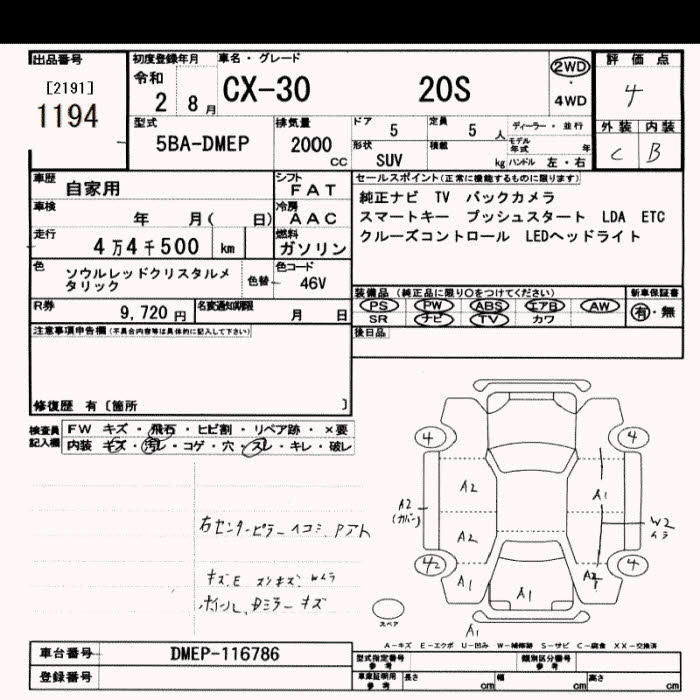 出品番号
[2191]
1194
初度登録年月
令和
2 8月
車名・グレード
CX-30 20S
2WD
・
4WD
評価点
4
外装 内装
C B
型式
5BA-DMEP
排気量
2000
CC
ドア
5
定員
5 人
ディーラー・並行
形状
SUV
積載
kg
モデル年式 年
ハンドル 左・右
車歴
自家用
シフト
FAT
車検
年 月( 日)
冷房
AAC
走行
4万4千500 km
燃料
ガソリン
色
ソウルレッドクリスタルメ
タリック
色替
色コード
46V
R券
9,720 円
名変通知期限
月 日
セールスポイント(正常に機能するものに限ります)
純正ナビ TV バックカメラ
スマートキー プッシュスタート LDA ETC
クルーズコントロール LEDヘッドライト
装備品(純正品に限り○をつけてください)
PS PW ABS エアB AW
SR ナビ TV カワ
新車保証書
有・無
後日品
注意事項申告欄(不具合内容等は具体的に記入して下さい)
修復歴 有〔箇所 〕
検査員
記入欄
FW キズ・飛石・ヒビ割・リペア跡・×要
内装 キズ・汚レ・コゲ・穴・スレ・キレ・破レ
右センターピラーヘコミ、Pアト
キズE スリキズ、Wムラ
ホイール、Dミラーキズ
4
4
A2
A1
A2
(カバー)
W2
ムラ
A2
42
4
A1
A1
A1
スペア
A-キズ E-エクボ U-凹み W-補修跡 S-サビ C-腐食 XX-交換済
車台番号
DMEP-116786
登録番号
型式指定番号
参考
類別区分番号
参考
車庫証明用
参考
長さ cm
幅 cm
高さ cm